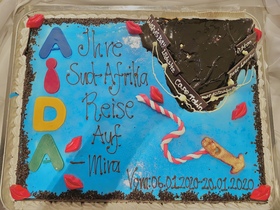 AIDA
Ihre
Süd-Afrika
Reise
Auf.
- Mira
Vom:06.01.2020-20.01.2020